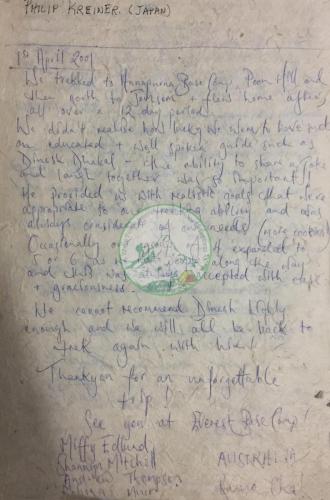 PHILIP KREINER (JAPAN)
1st April 2001
We trekked to Annapurna Base Camp, Poon Hill and
then north to Jomsom + flew home after
all over a 12 day period.
We didn't realise how lucky we were to have met
an educated + well spoken guide such as
Dinesh Dhakal - the ability to share a joke
and laugh together was so important!
He provided us with realistic goals that were
appropriate to our trekking ability and was
always considerate of our needs (more cookies!)
Occasionally our group of 4 expanded to
5 or 6 as we met along the way
and this was always accepted with
+ graciousness.
We cannot recommend Dinesh highly
enough and we will all be back to
trek again with him!
Thankyou for an unforgettable
trip!
See you at Everest Base Camp!
Miffy Edlund
Shannon Mitchell
Andrew Thompson
AUSTRALIA